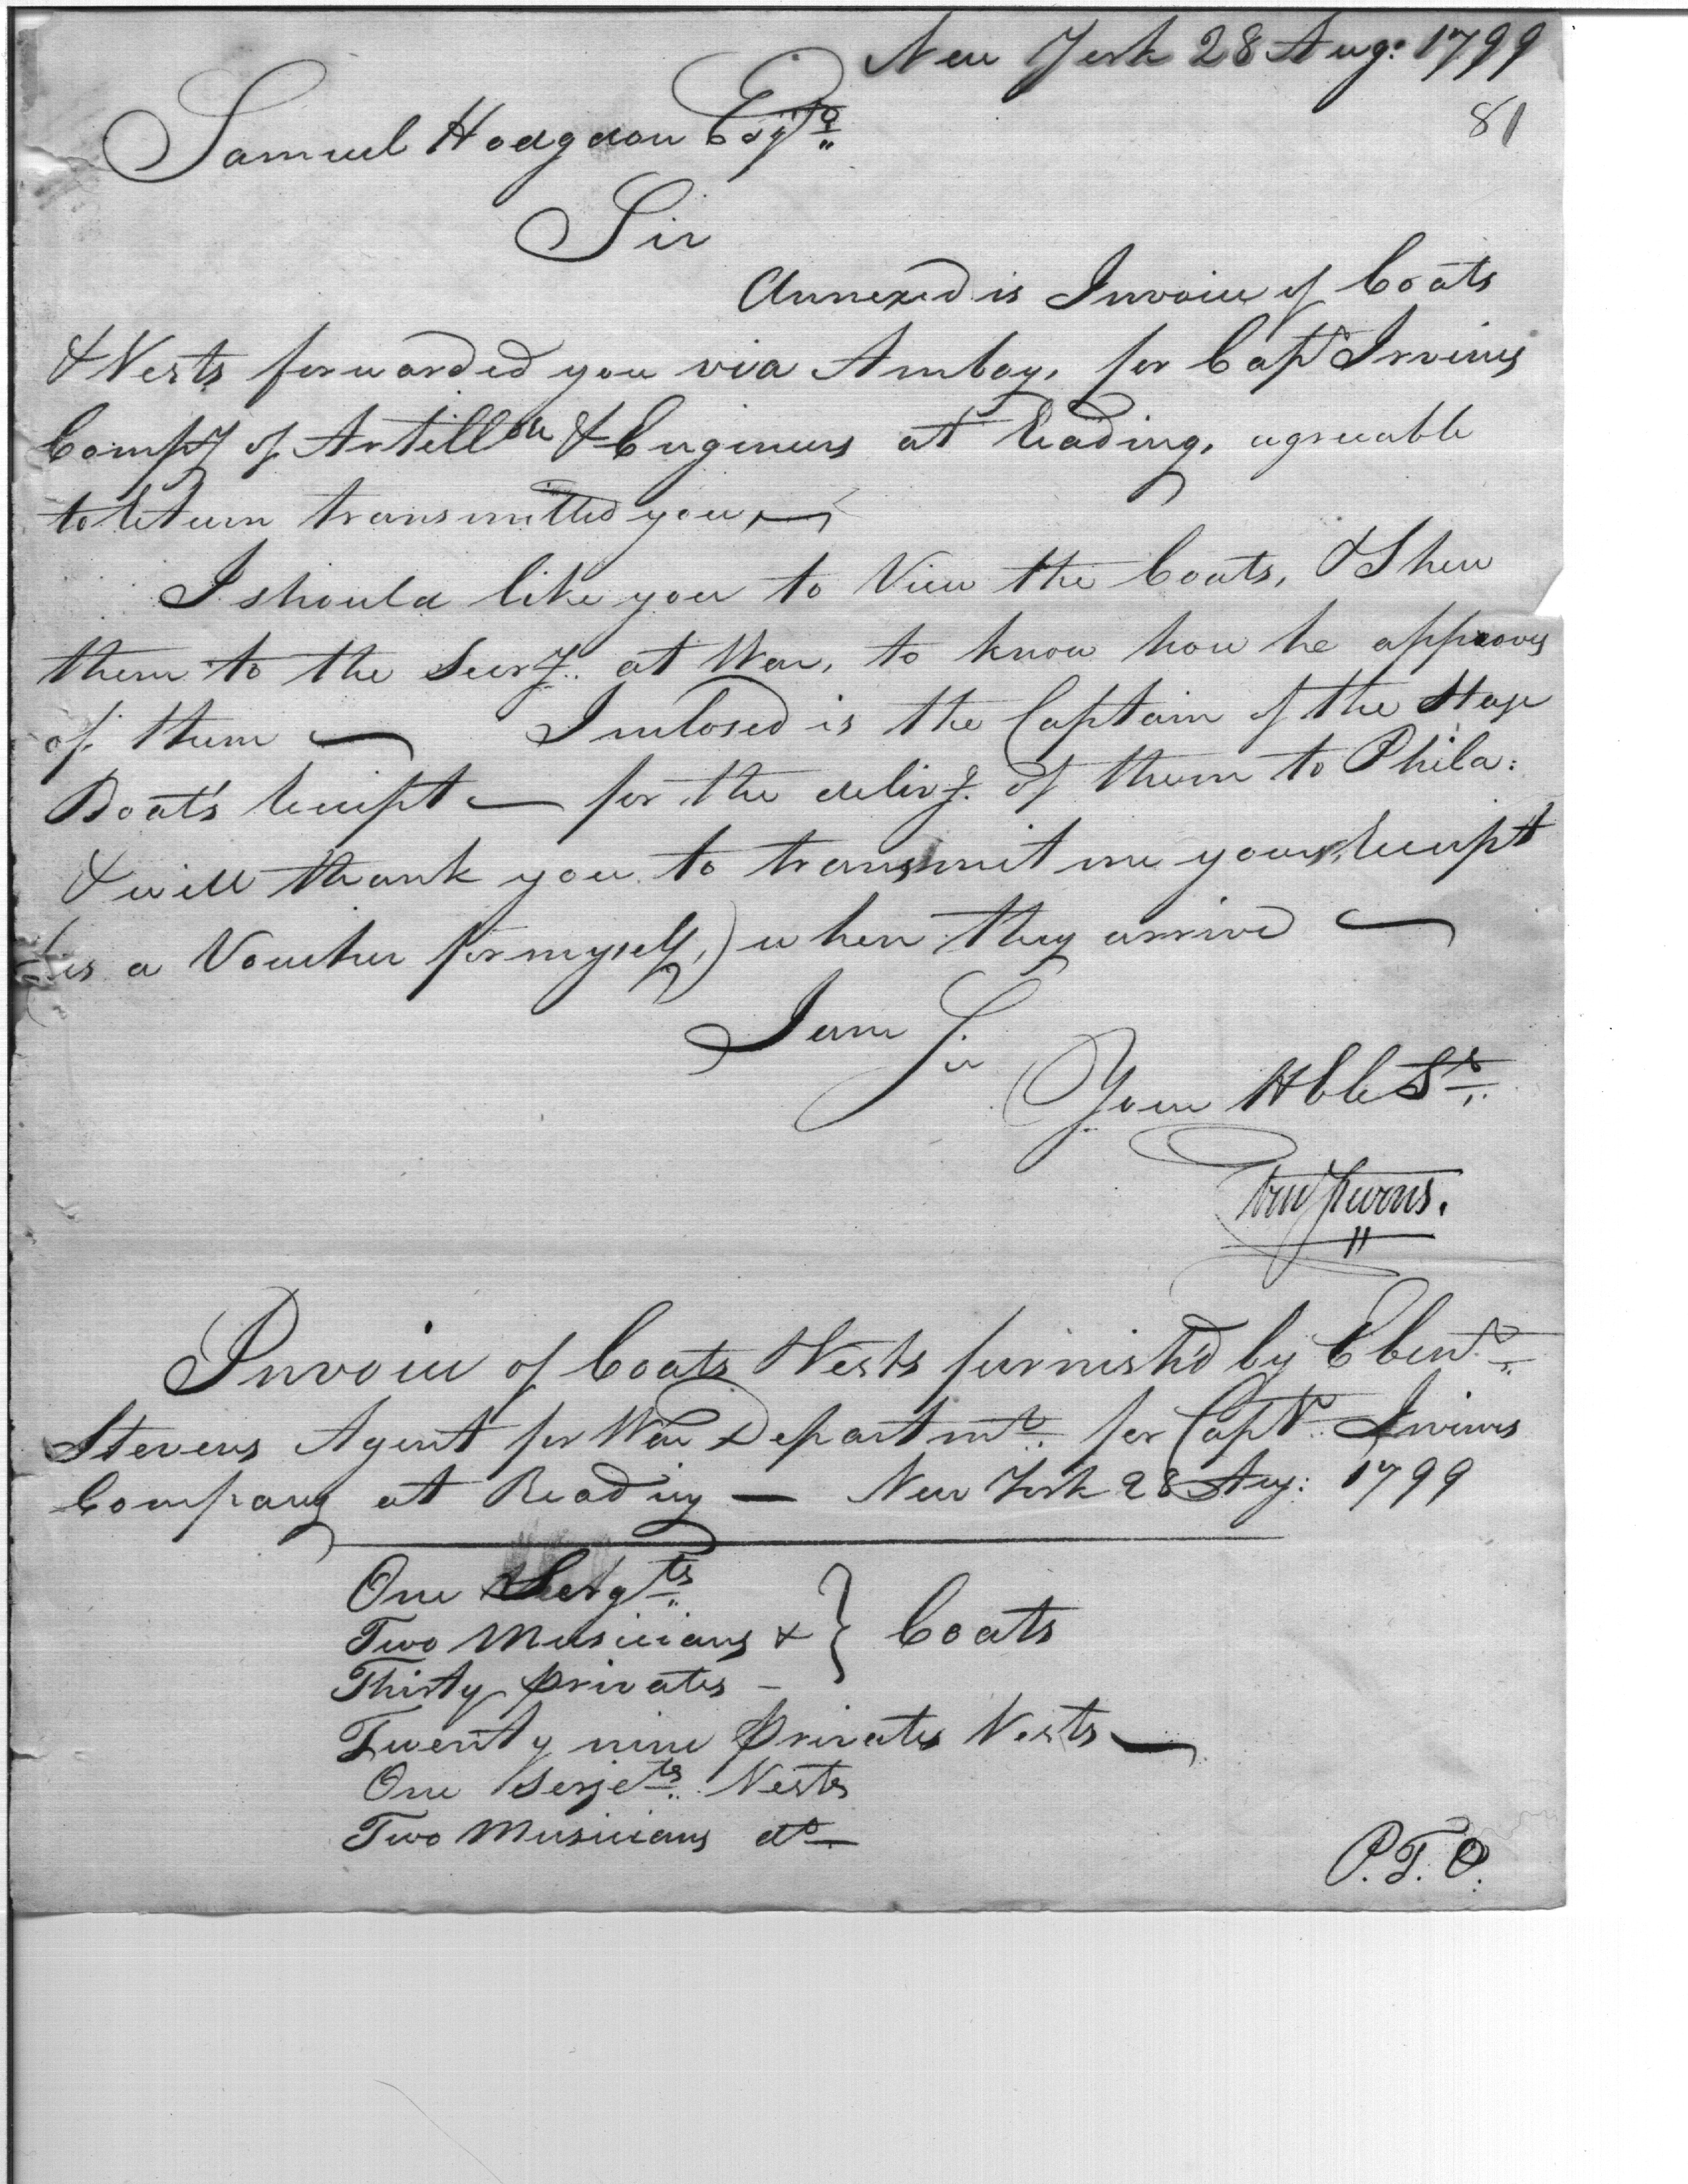 New York 28 Aug: 1799
81
Samuel Hodgdon Esqr.
Sir
Annexed is Invoice of Coats
& Vests forwarded you via Amboy, for Capt Irvines
Compy of Artille & Engineers at Reading, agreeable
to Return transmitted you,
I should like you to View the Coats, & Shew
them to the Secry. at War, to know how he approves
of them — Inclosed is the Captain of the Stage
Boat's Receipt — for the delivy. of them to Phila:
& will thank you to transmit me your Receipt
(as a Voucher for myself,) when they arrive —
I am Sir
Your Hble St.
Invoice of Coats & Vests furnish'd by Ebenr.
Stevens Agent for War Departmt. for Capt. Irvines
Company at Reading — New York 28 Aug: 1799
One Sergts.
Two Musicians & } Coats
Thirty privates -
Twenty nine privates Vests —
One Serjets. Vests
Two Musicians do
P.T.O.